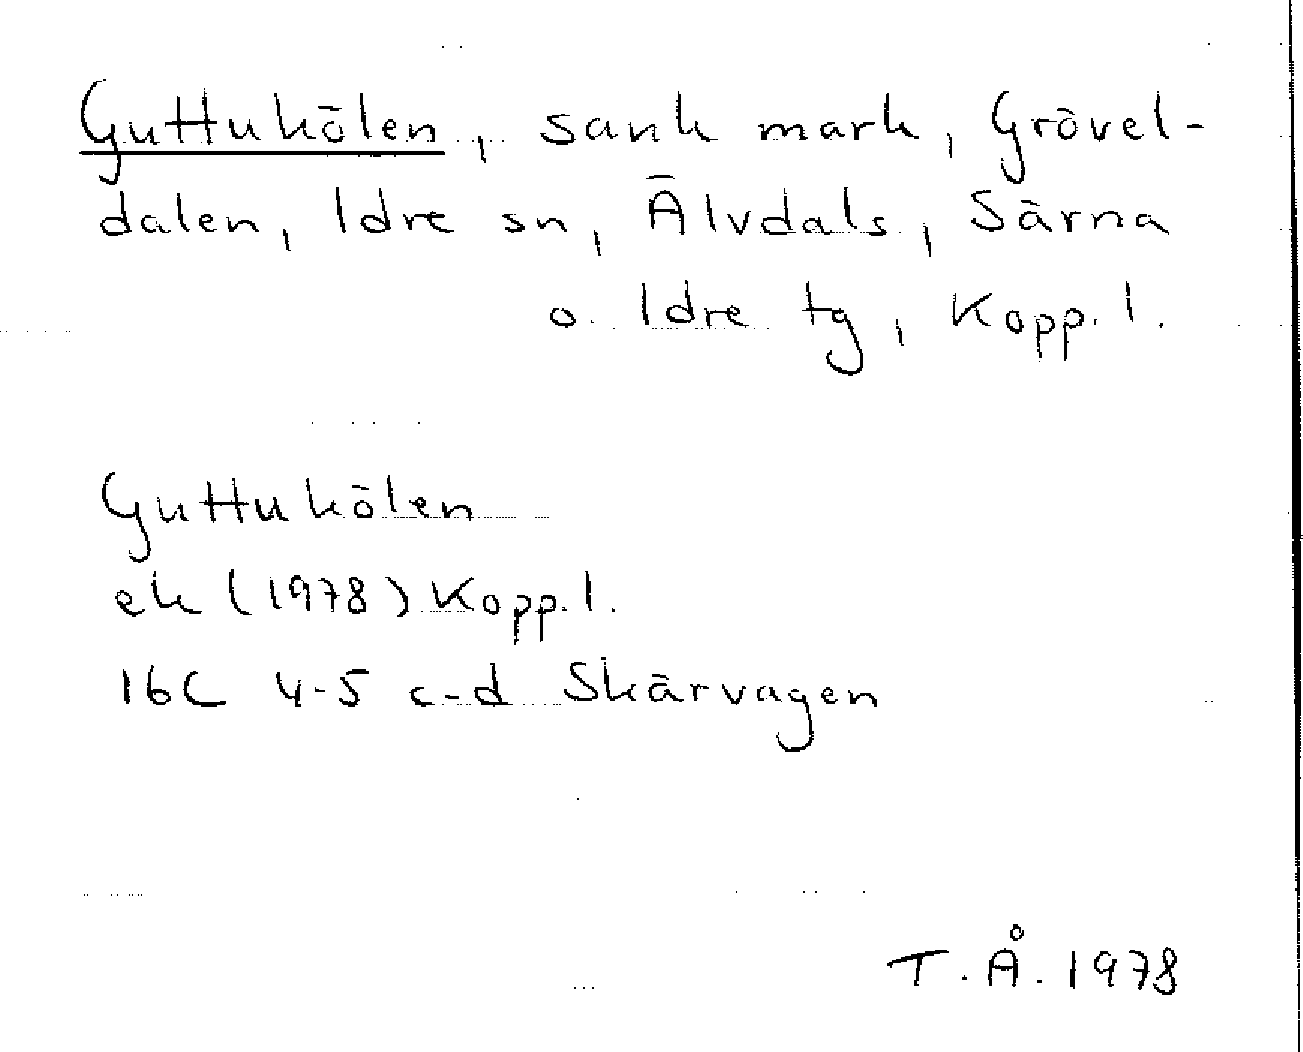 Guttukölen, sank mark, Grövel-
dalen, Idre sn, Älvdals, Särna
o. Idre tg, Kopp. l.
Guttukölen
ek (1978) Kopp. l.
16C 4-5 c-d Skärvagen
T.Å. 1978